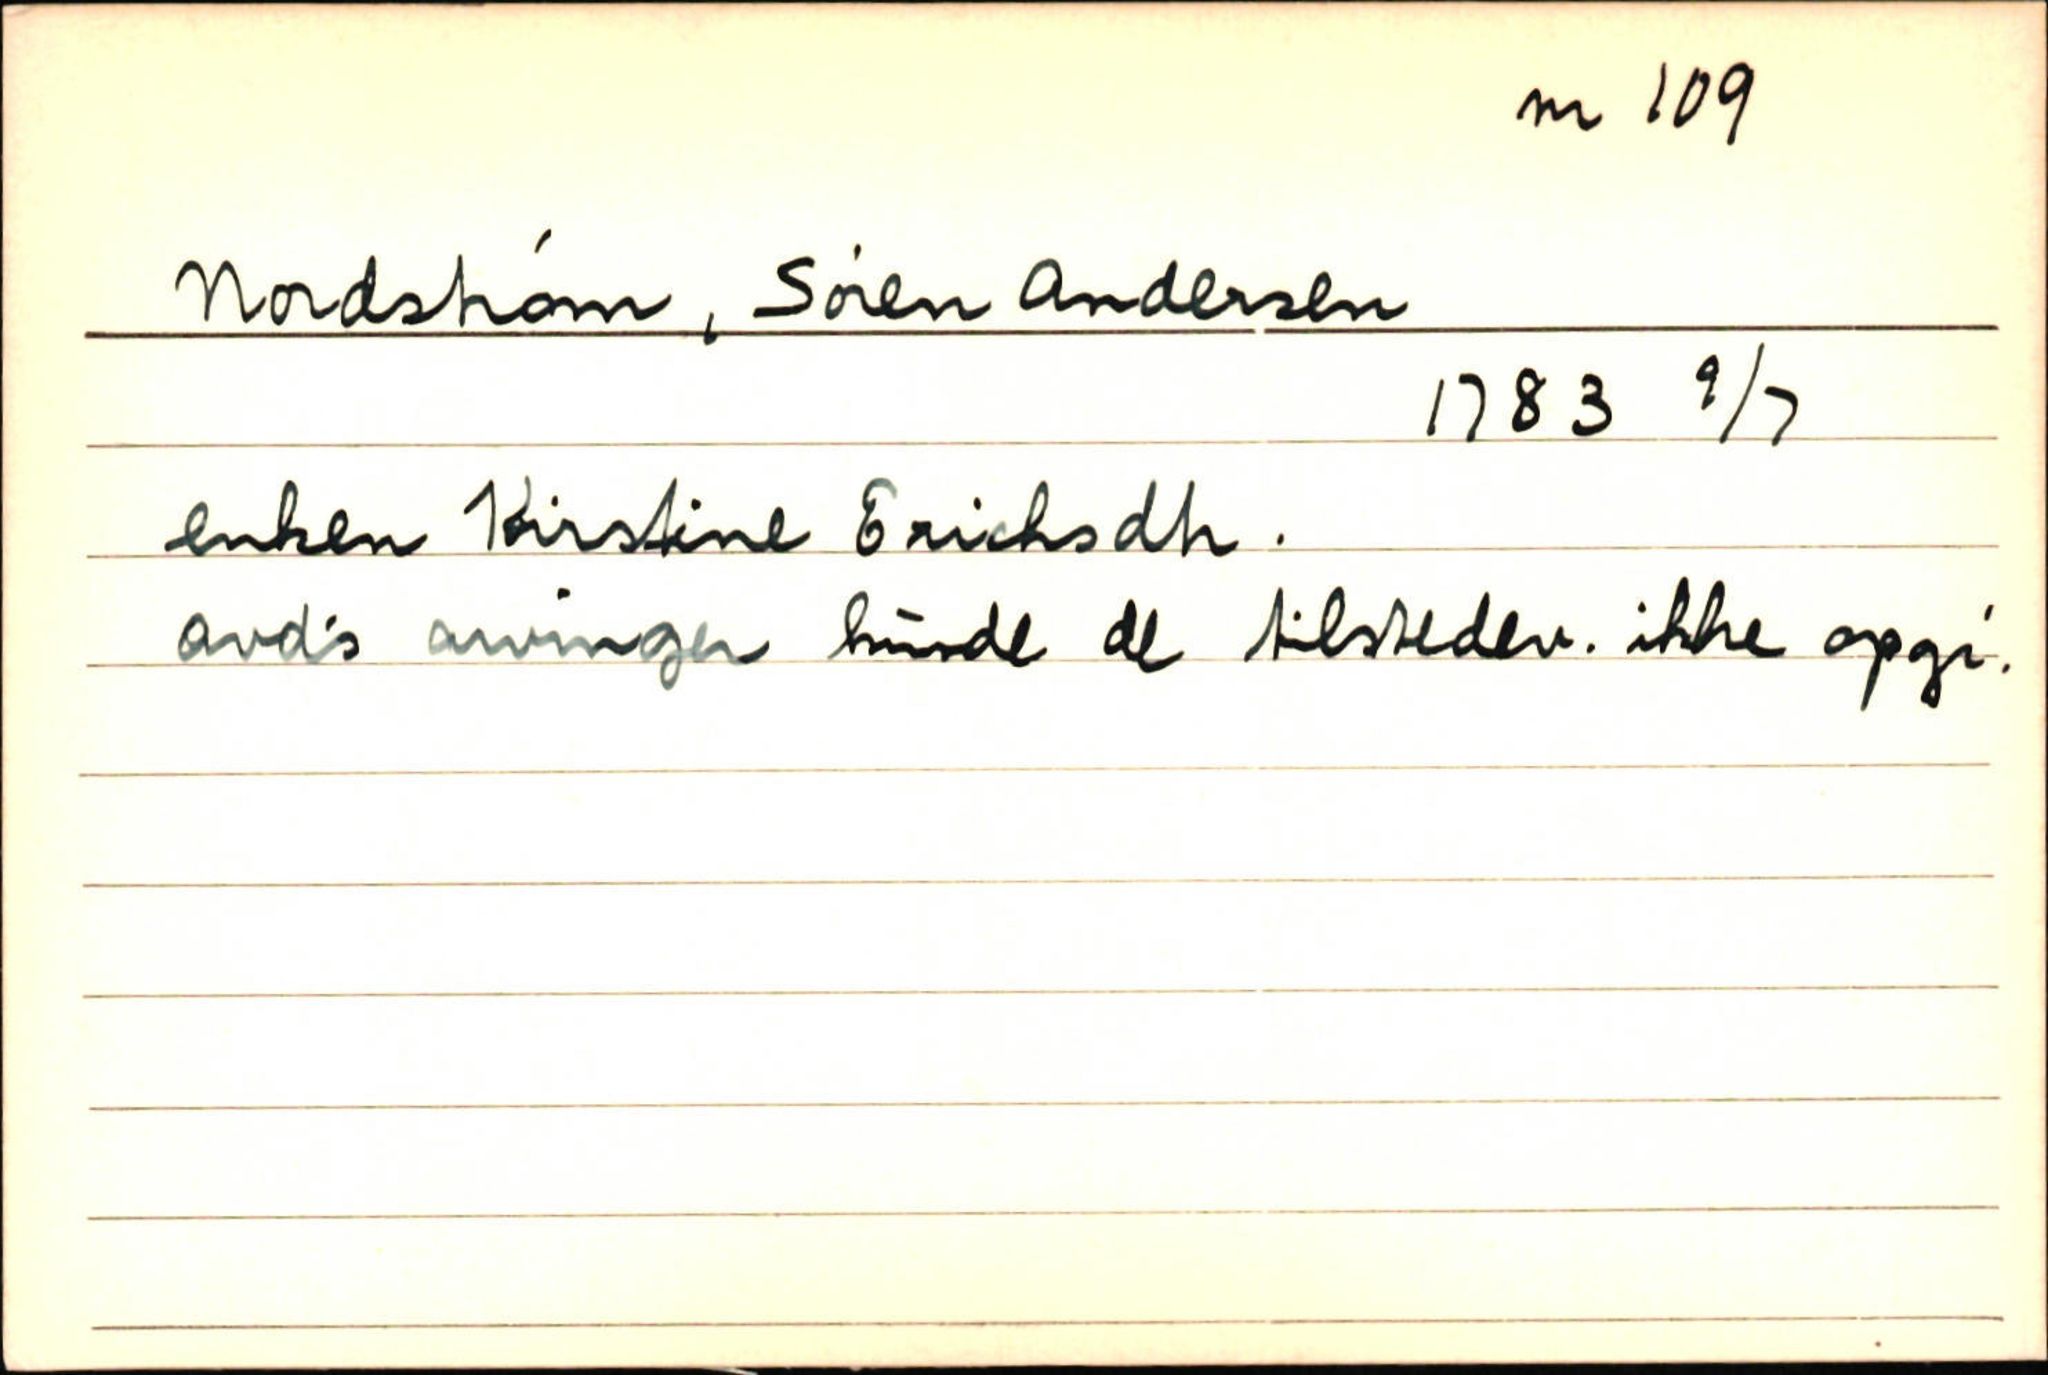 nr 109
Nordstrøm, Sören Andersen
1783 9/7
enken Kirstine Erichsdtr.
avd's arvinger kunde de tilstedev. ikke opgi.